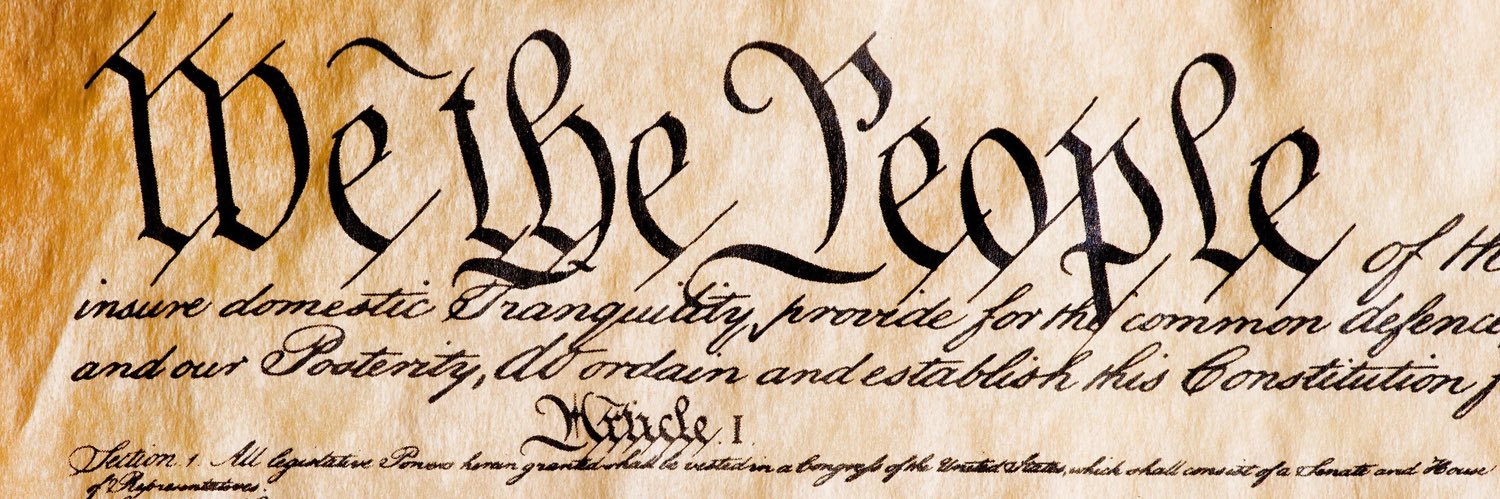 We the People of the
insure domestic Tranquility, provide for the common defence,
and our Posterity, do ordain and establish this Constitution f
Article. I.
Section. 1. All legislative Powers herein granted shall be vested in a Congress of the United States, which shall consist of a Senate and House
of Representatives.